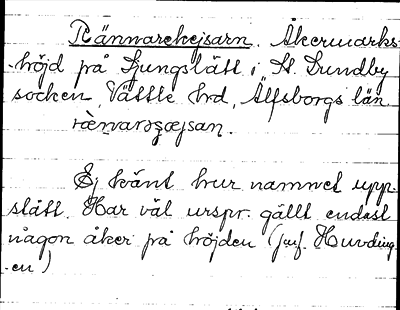 Rännarehejsarn. Åkermarks-
-höjd på Ljungslätt i St. Lundby
socken, Vättle hrd, Älfsborgs län.
Ej känt hur namnet upp-
stått. Har väl urspr. gällt endast
någon åker på höjden (jmf. Huvding-
-en)